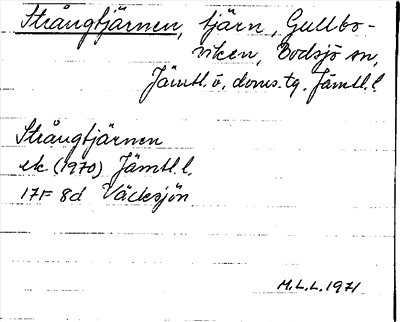 Strångtjärnen, tjärn, Gullbo-
viken, Bodsjö sn,
Jämtl. ö. doms. tg. Jämtl. l.
Strångtjärnen
ek (1970) Jämtl. l.
17F 8d Väcksjön
M.L.L. 1971